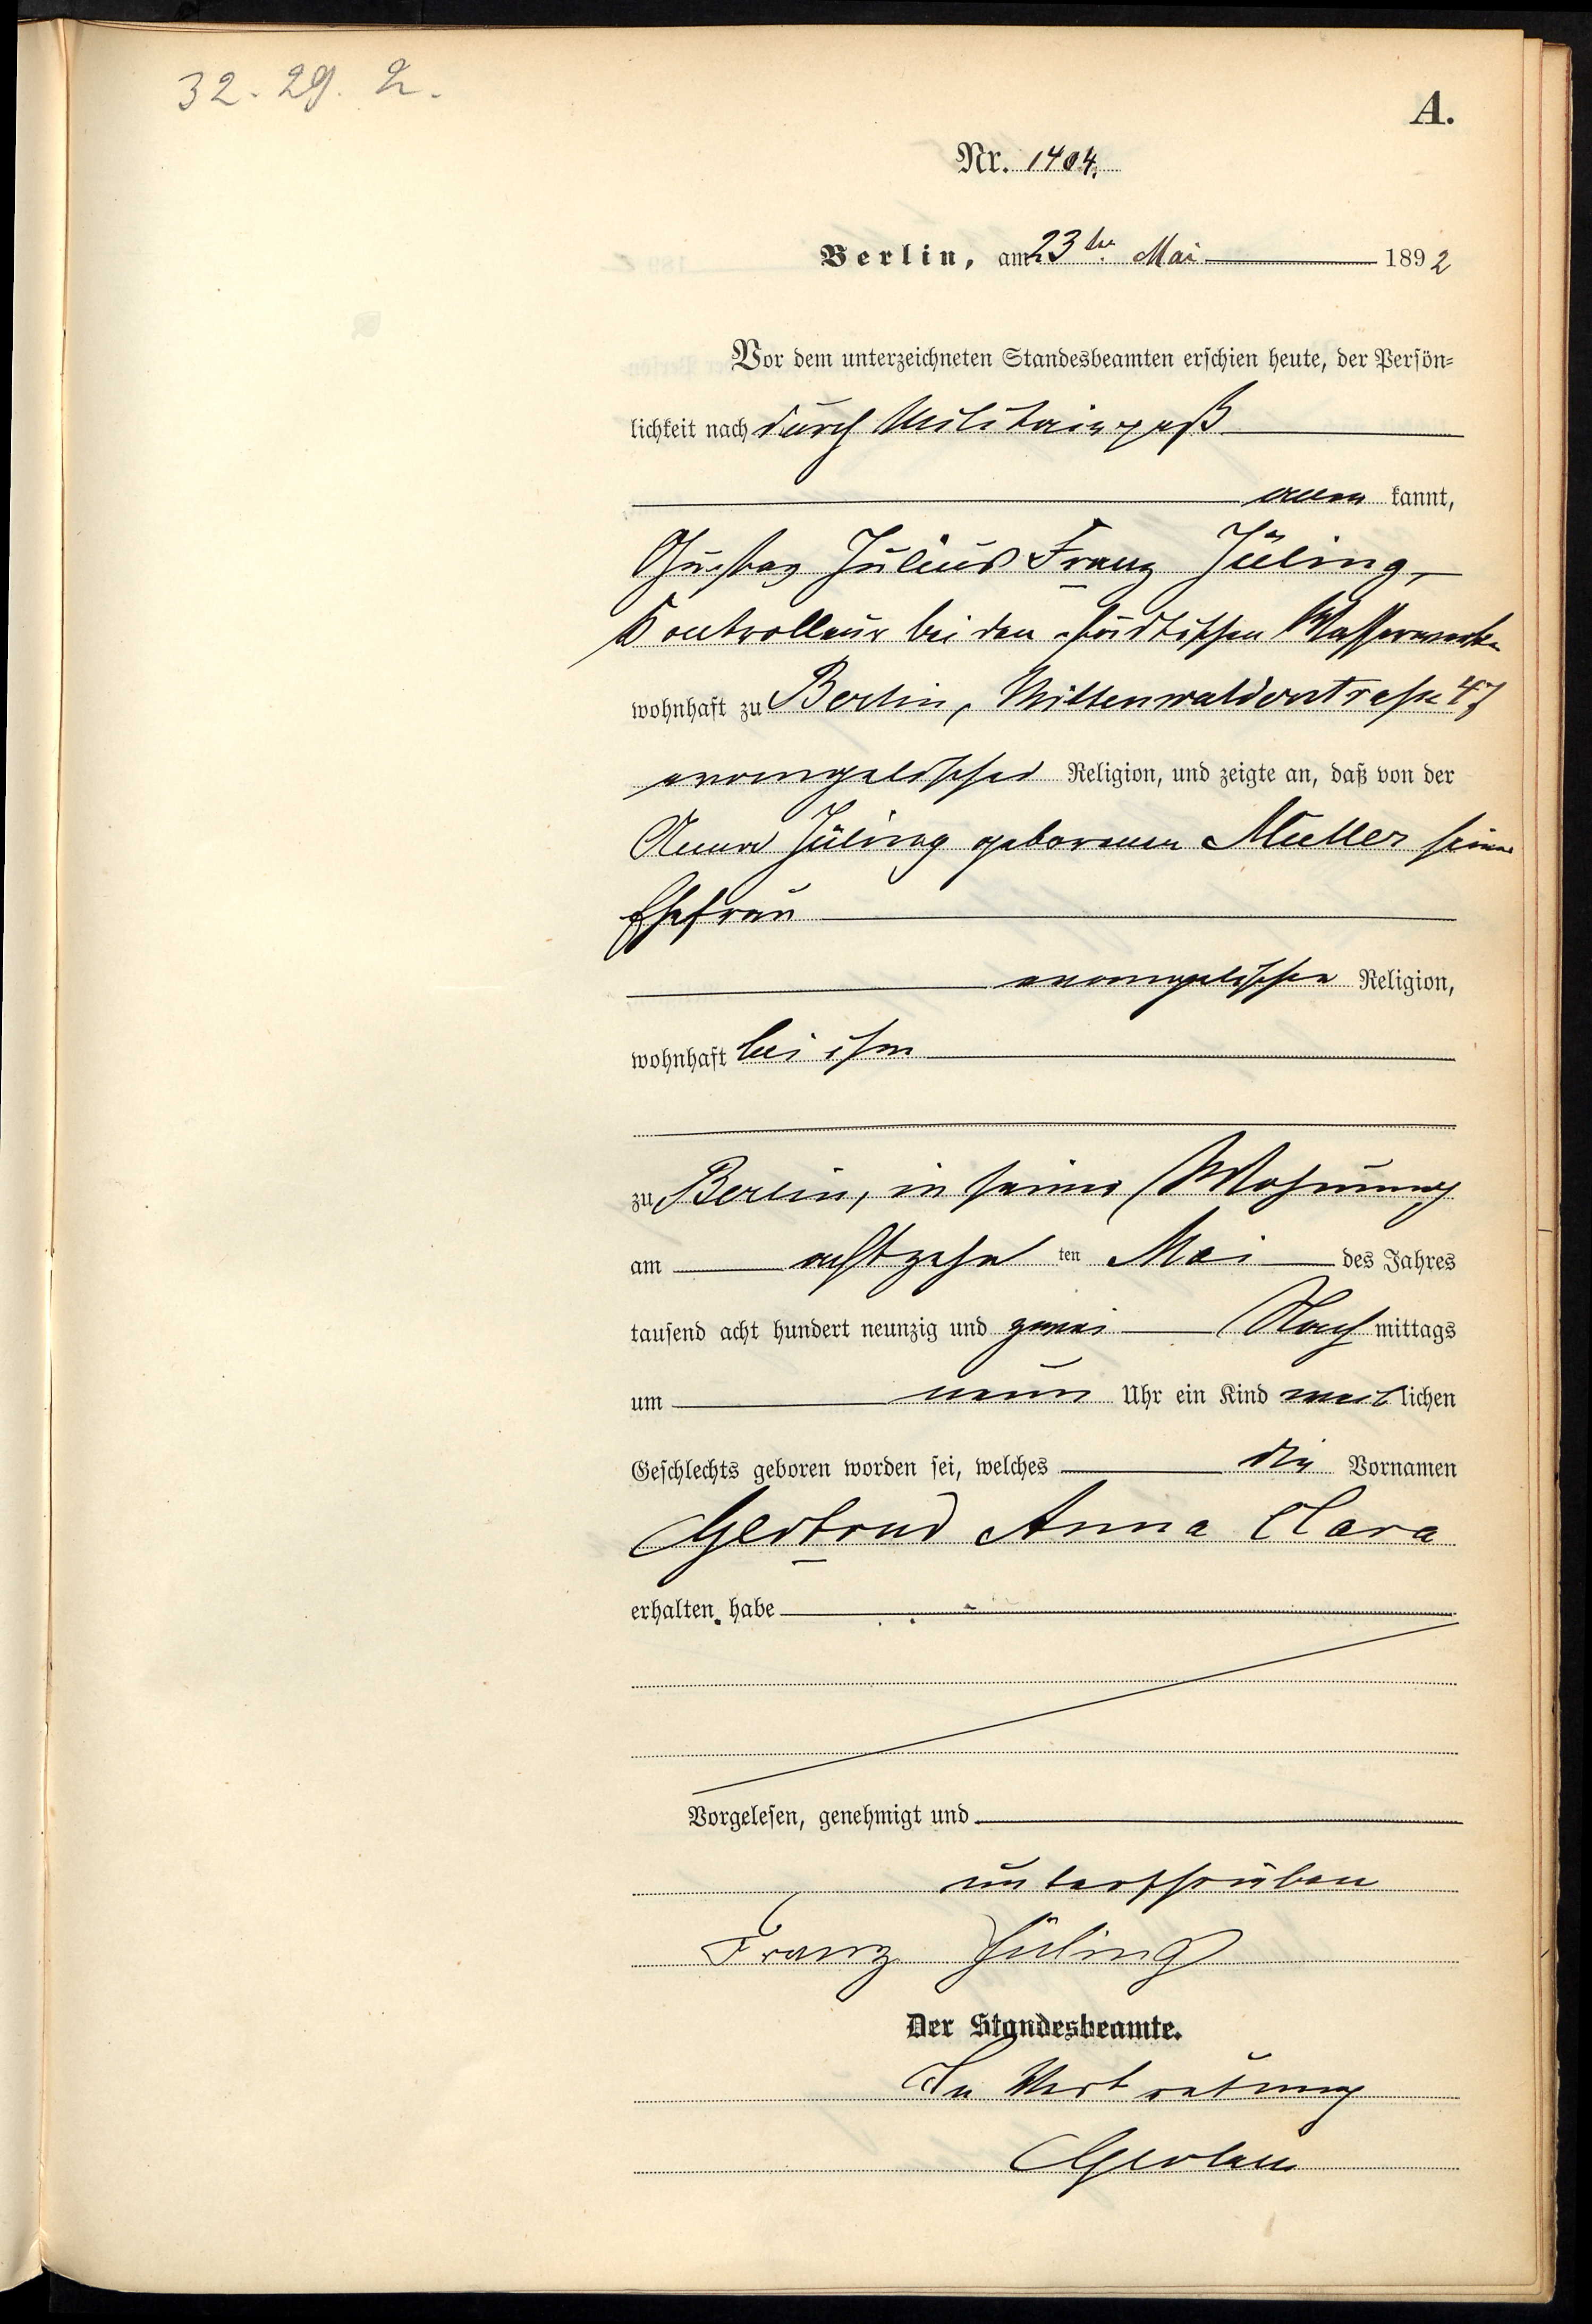 32. 29. 2.
A.
Nr. 1404.
Berlin, am 23ten Mai 1892
Vor dem unterzeichneten Standesbeamten erschien heute, der Persön-
lichkeit nach durch Militairpaß
aner kannt,
Gustav Julius Franz Jüling,
Kontrolleur bei den städtischen Wasserwerken
wohnhaft zu Berlin, Mittenwalderstraße 47
evangelischer Religion, und zeigte an, daß von der
Anna Jüling geborenen Müller seiner
Ehefrau
evangelischer Religion,
wohnhaft bei ihm
zu Berlin, in seiner Wohnung
am achtzehn ten Mai des Jahres
tausend acht hundert neunzig und zwei Nach mittags
um neun Uhr ein Kind weib lichen
Geschlechts geboren worden sei, welches die Vornamen
Gertrud Anna Clara
erhalten habe
Vorgelesen, genehmigt und
unterschrieben
Franz Jüling
Der Standesbeamte.
In Vertretung